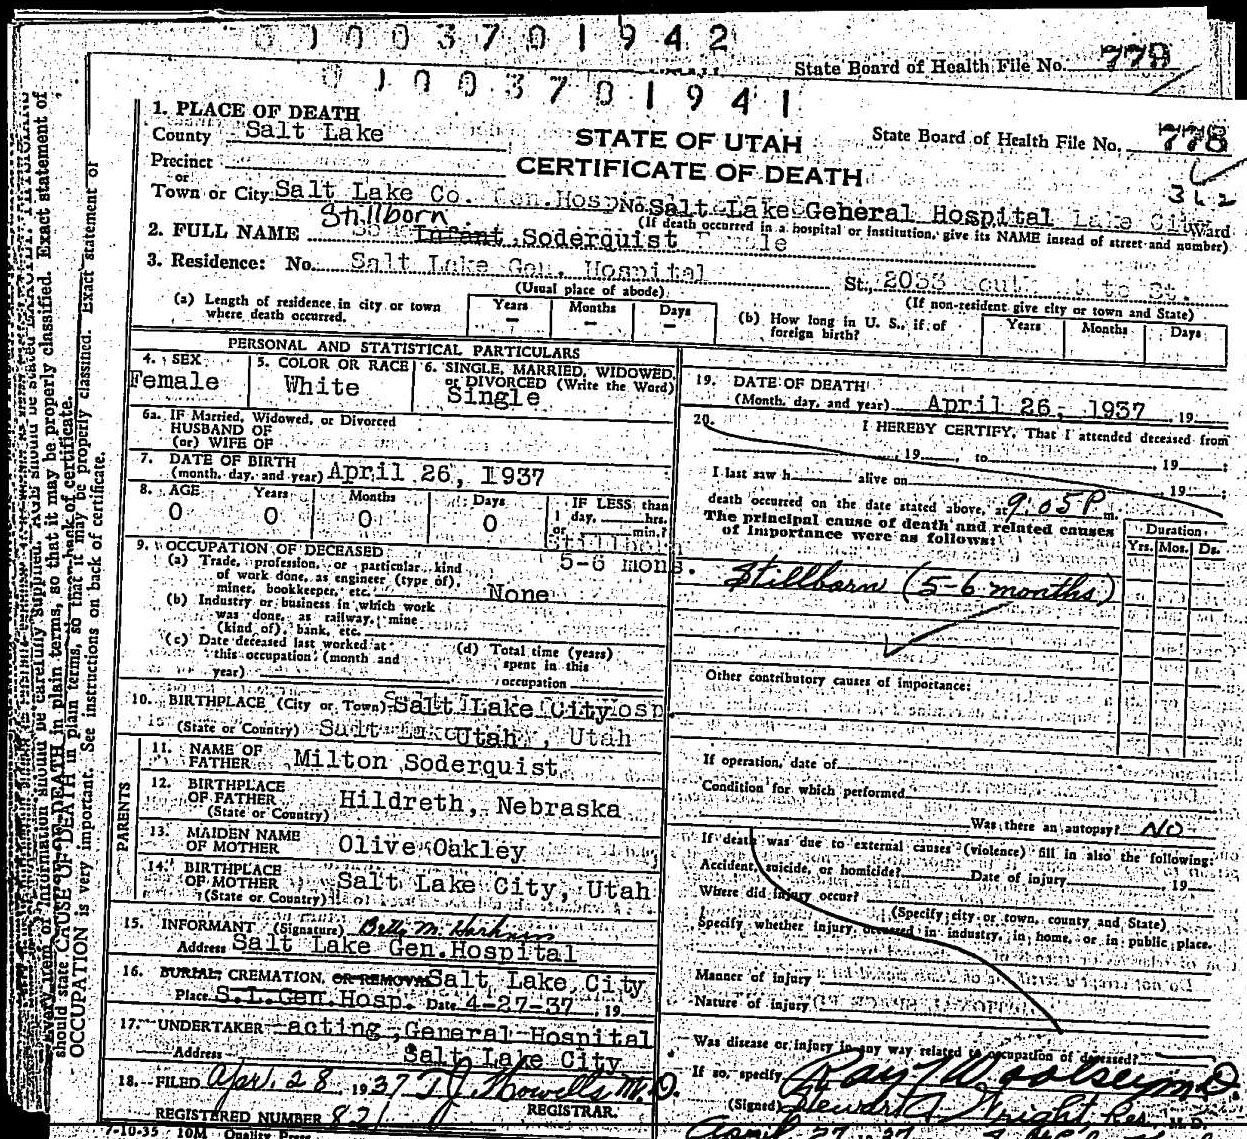 01003701942
State Board of Health File No. 779
01003701941
1. PLACE OF DEATH
County Salt Lake
STATE OF UTAH
CERTIFICATE OF DEATH
State Board of Health File No. 778
Precinct
or
Town or City Salt Lake Co. Gen. Hosp No. Salt Lake General Hospital Ward
(If death occurred in a hospital or institution, give its NAME instead of street and number)
Stillborn
2. FULL NAME Infant Soderquist
3. Residence: No. Salt Lake Gen. Hospital St., 2033 State St.
(Usual place of abode)
(If non-resident give city or town and State)
(a) Length of residence in city or town where death occurred. Years – Months – Days –
(b) How long in U. S., if of foreign birth? Years Months Days
PERSONAL AND STATISTICAL PARTICULARS
4. SEX Female
5. COLOR OR RACE White
6. SINGLE, MARRIED, WIDOWED, or DIVORCED (Write the Word) Single
6a. IF Married, Widowed, or Divorced
HUSBAND OF
(or) WIFE OF
7. DATE OF BIRTH
(month, day, and year) April 26, 1937
8. AGE Years Months Days IF LESS than
0 0 0 0 1 day, hrs.
or min.?
Stillborn
5-6 mons.
9. OCCUPATION OF DECEASED
(a) Trade, profession, or particular kind
of work done, as engineer (type of),
miner, bookkeeper, etc. None
(b) Industry or business in which work
was done, as railway, mine
(kind of), bank, etc.
(c) Date deceased last worked at
this occupation (month and
year)
(d) Total time (years)
spent in this
occupation
10. BIRTHPLACE (City or Town) Salt Lake City
(State or Country) Utah
PARENTS
11. NAME OF
FATHER Milton Soderquist
12. BIRTHPLACE
OF FATHER Hildreth, Nebraska
(State or Country)
13. MAIDEN NAME
OF MOTHER Olive Oakley
14. BIRTHPLACE
OF MOTHER Salt Lake City, Utah
(State or Country)
15. INFORMANT (Signature) Betty M.
Address Salt Lake Gen. Hospital
16. BURIAL, CREMATION, OR REMOVAL Salt Lake City
Place S.L. Gen. Hosp. Date 4-27-37, 19
17. UNDERTAKER acting, General Hospital
Address Salt Lake City
18. FILED Apr. 28, 1937 T J Howells M.D.
REGISTRAR.
REGISTERED NUMBER 821
7-10-35 10M Quality Press
19. DATE OF DEATH
(Month, day, and year) April 26, 1937, 19
20. I HEREBY CERTIFY, That I attended deceased from
, 19 , to , 19 ;
I last saw h alive on , 19 ;
death occurred on the date stated above, at 9:05 P m.
The principal cause of death and related causes
of importance were as follows:
Duration
Yrs. Mos. Ds.
Stillborn (5-6 months)
Other contributory causes of importance:
If operation, date of
Condition for which performed
Was there an autopsy? NO
If death was due to external causes (violence) fill in also the following:
Accident, suicide, or homicide? Date of injury 19
Where did injury occur?
(Specify city or town, county and State)
Specify whether injury occurred in industry, in home, or in public place.
Manner of injury
Nature of injury
Was disease or injury in any way related to occupation of deceased?
If so, specify Ray T Woolsey M.D.
(Signed) Stewart A Wright, Res. M.D.
April 27 1937
Every item of information should be carefully supplied. AGE should be stated EXACTLY.
should state CAUSE OF DEATH in plain terms, so that it may be properly classified. Exact statement of
OCCUPATION is very important. See instructions on back of certificate.